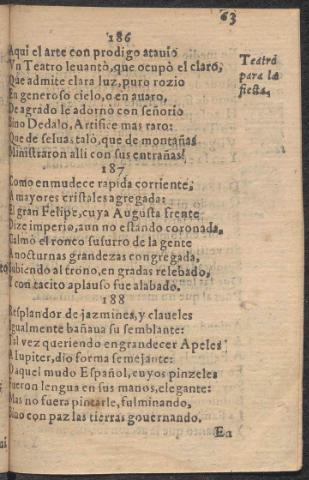 63
186
Aqui el arte con prodigo atauio
Vn Teatro leuantò, que ocupò el claro,
Que admite clara luz, puro rozio
En generoso cielo, o en auaro,
De agrado le adornò con señorio
Sino Dedalo, Artifice mas raro:
Que de seluas talò, que de montañas
Ministraron alli con sus entrañas!
Teatro
para la
fiesta.
187
Como enmudece rapida corriente,
A mayores cristales agregada:
El gran Felipe, cuya Augusta frente
Dize imperio, aun no estando coronada,
Calmò el ronco susurro de la gente
A nocturnas grandezas congregada,
Subiendo al trono, en gradas relebado,
Y con tacito aplauso fue alabado.
188
Resplandor de jazmines, y claueles
Igualmente bañaua su semblante:
Tal vez queriendo engrandecer Apeles
A Iupiter, dio forma semejante:
O aquel mudo Español, cuyos pinzeles
Fueron lengua en sus manos, elegante:
Mas no fuera pintarle, fulminando,
Sino con paz las tierras gouernando.
En